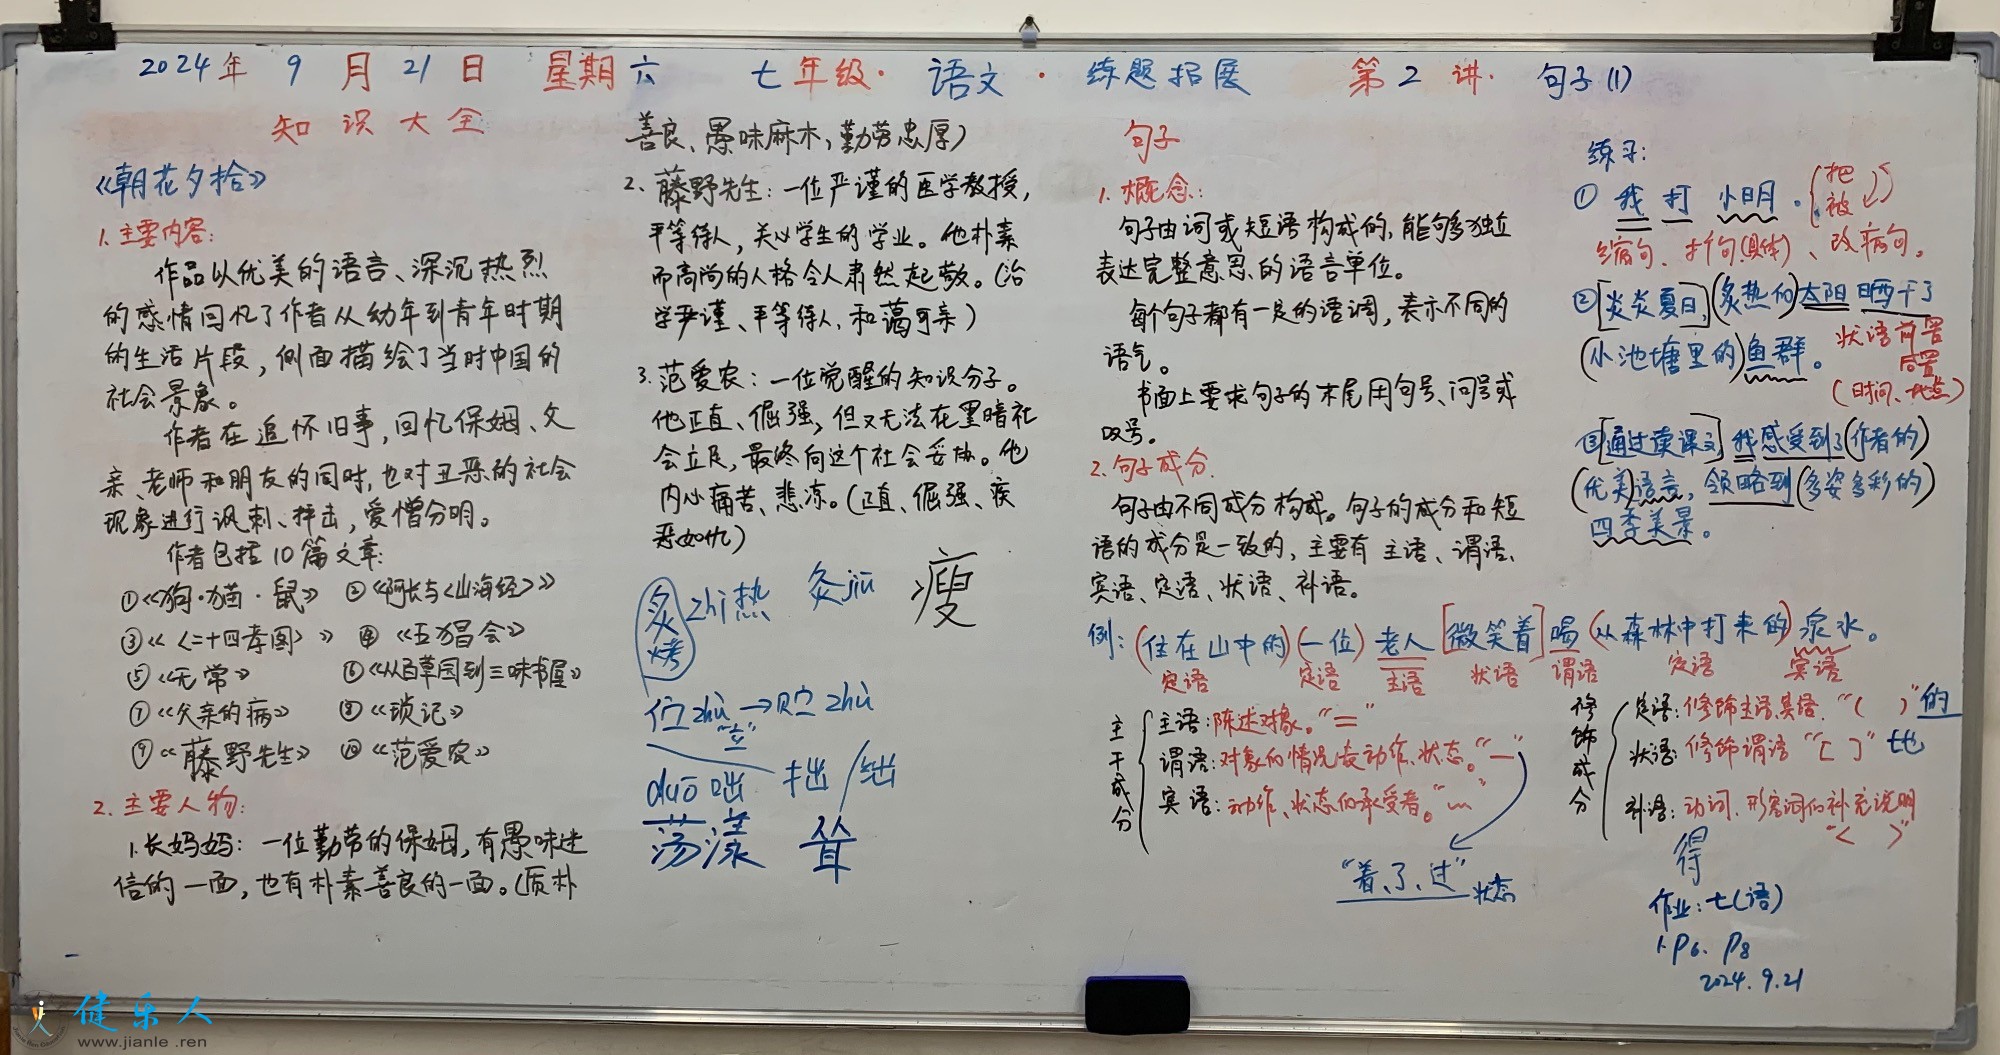 2024年 9 月 21 日 星期六 七年级·语文·练题拓展 第 2 讲· 句子(1)
知识大全
《朝花夕拾》
1.主要内容:
作品以优美的语言、深沉热烈
的感情回忆了作者从幼年到青年时期
的生活片段,侧面描绘了当时中国的
社会景象。
作者在追怀旧事,回忆保姆、父
亲、老师和朋友的同时,也对丑恶的社会
现象进行讽刺、抨击,爱憎分明。
作者包括10篇文章:
①《狗·猫·鼠》 ②《阿长与〈山海经〉》
③《〈二十四孝图〉》 ④《五猖会》
⑤《无常》 ⑥《从百草园到三味书屋》
⑦《父亲的病》 ⑧《琐记》
⑨《藤野先生》 ⑩《范爱农》
2.主要人物:
1.长妈妈:一位勤劳的保姆,有愚昧迷
信的一面,也有朴素善良的一面。(质朴
善良、愚昧麻木,勤劳忠厚)
2.藤野先生:一位严谨的医学教授,
平等待人,关心学生的学业。他朴素
而高尚的人格令人肃然起敬。(治
学严谨、平等待人,和蔼可亲)
3.范爱农:一位觉醒的知识分子。
他正直、倔强,但又无法在黑暗社
会立足,最终向这个社会妥协。他
内心痛苦、悲凉。(正直、倔强、疾
恶如仇)
炙zhì热 灸jiǔ 瘦
烤
伫zhù→贮zhù
"立"
duō咄 拙/绌
荡漾 耸
句子
1.概念:
句子由词或短语构成的,能够独立
表达完整意思的语言单位。
每个句子都有一定的语调,表示不同的
语气。
书面上要求句子的末尾用句号、问号或
叹号。
2.句子成分.
句子由不同成分构成。句子的成分和短
语的成分是一致的,主要有主语、谓语、
宾语、定语、状语、补语。
例:(住在山中的)(一位)老人[微笑着]喝(从森林中打来的)泉水。
定语 定语 主语 状语 谓语 定语 宾语
主干成分
主语:陈述对象。"="
谓语:对象的情况表动作、状态。"—"
宾语:动作、状态的承受者。"﹏"
"着、了、过"状态
修饰成分
定语:修饰主语、宾语."( )"的
状语:修饰谓语"[ ]"地
补语:动词、形容词的补充说明
"< >"
得
练习:
①我 打 小明。{把 被
缩句、扩句(具体)、改病句。
②[炎炎夏日],(炙热的)太阳晒干了
(小池塘里的)鱼群。状语前置
后置
(时间、地点)
③[通过读课文],我感受到了(作者的)
(优美)语言,领略到(多姿多彩的)
四季美景。
作业:七(语)
1.P6. P8
2024.9.21
健乐人
www.jianle .ren